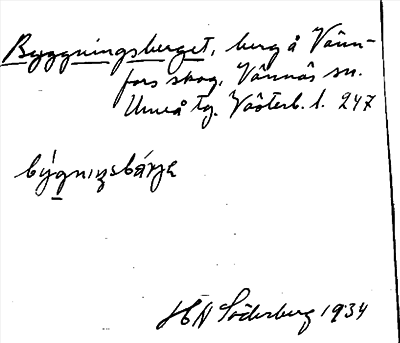 Byggningsberget, berg å Vänn-
fors skog, Vännäs sn.
Umeå tg. Västerb. l. 247
býgnıŋsbárjɛ
HBN Söderberg 1934